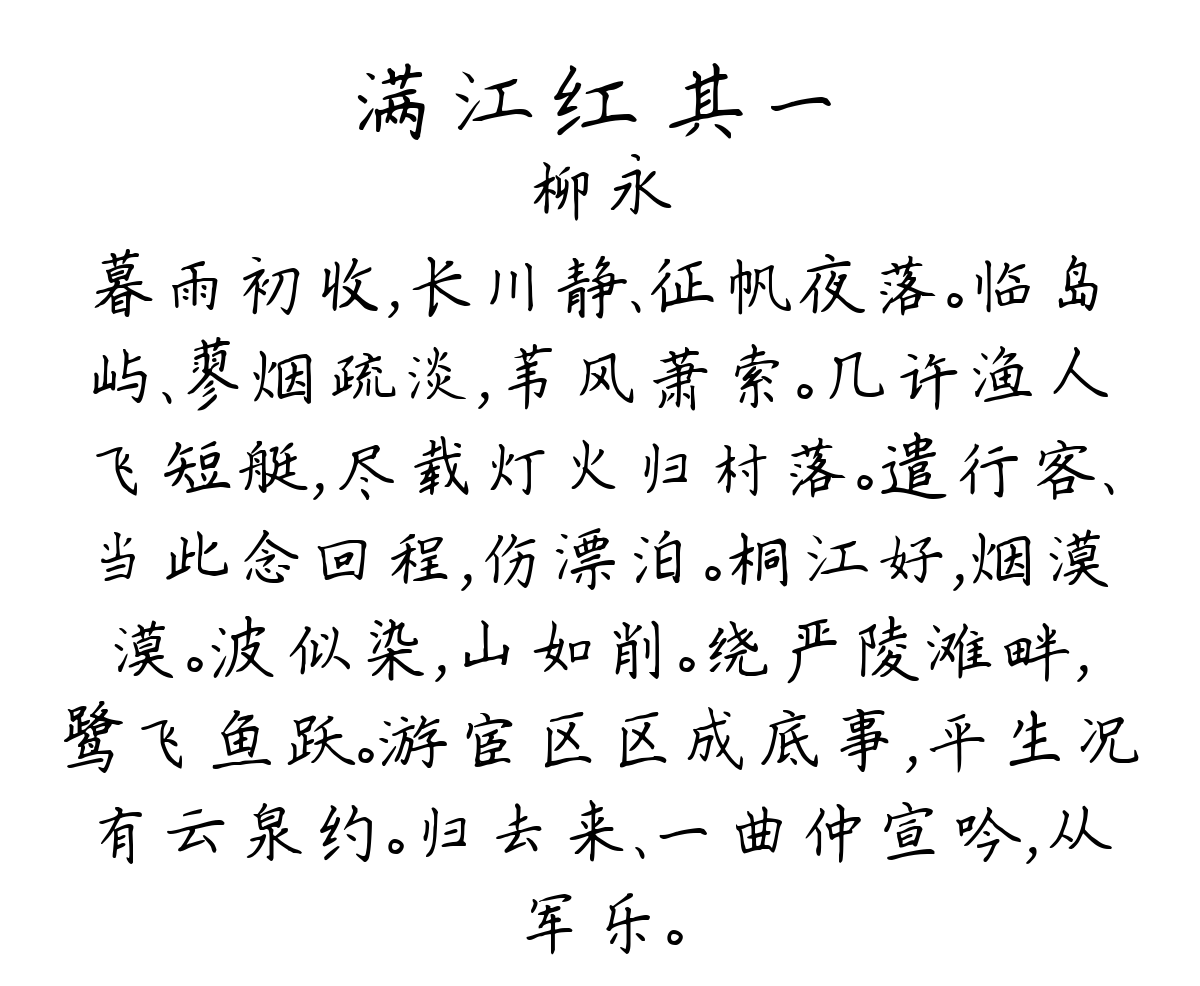 满江红 其一
柳永
暮雨初收,长川静、征帆夜落。临岛
屿、蓼烟疏淡,苇风萧索。几许渔人
飞短艇,尽载灯火归村落。遣行客、
当此念回程,伤漂泊。桐江好,烟漠
漠。波似染,山如削。绕严陵滩畔,
鹭飞鱼跃。游宦区区成底事,平生况
有云泉约。归去来、一曲仲宣吟,从
军乐。